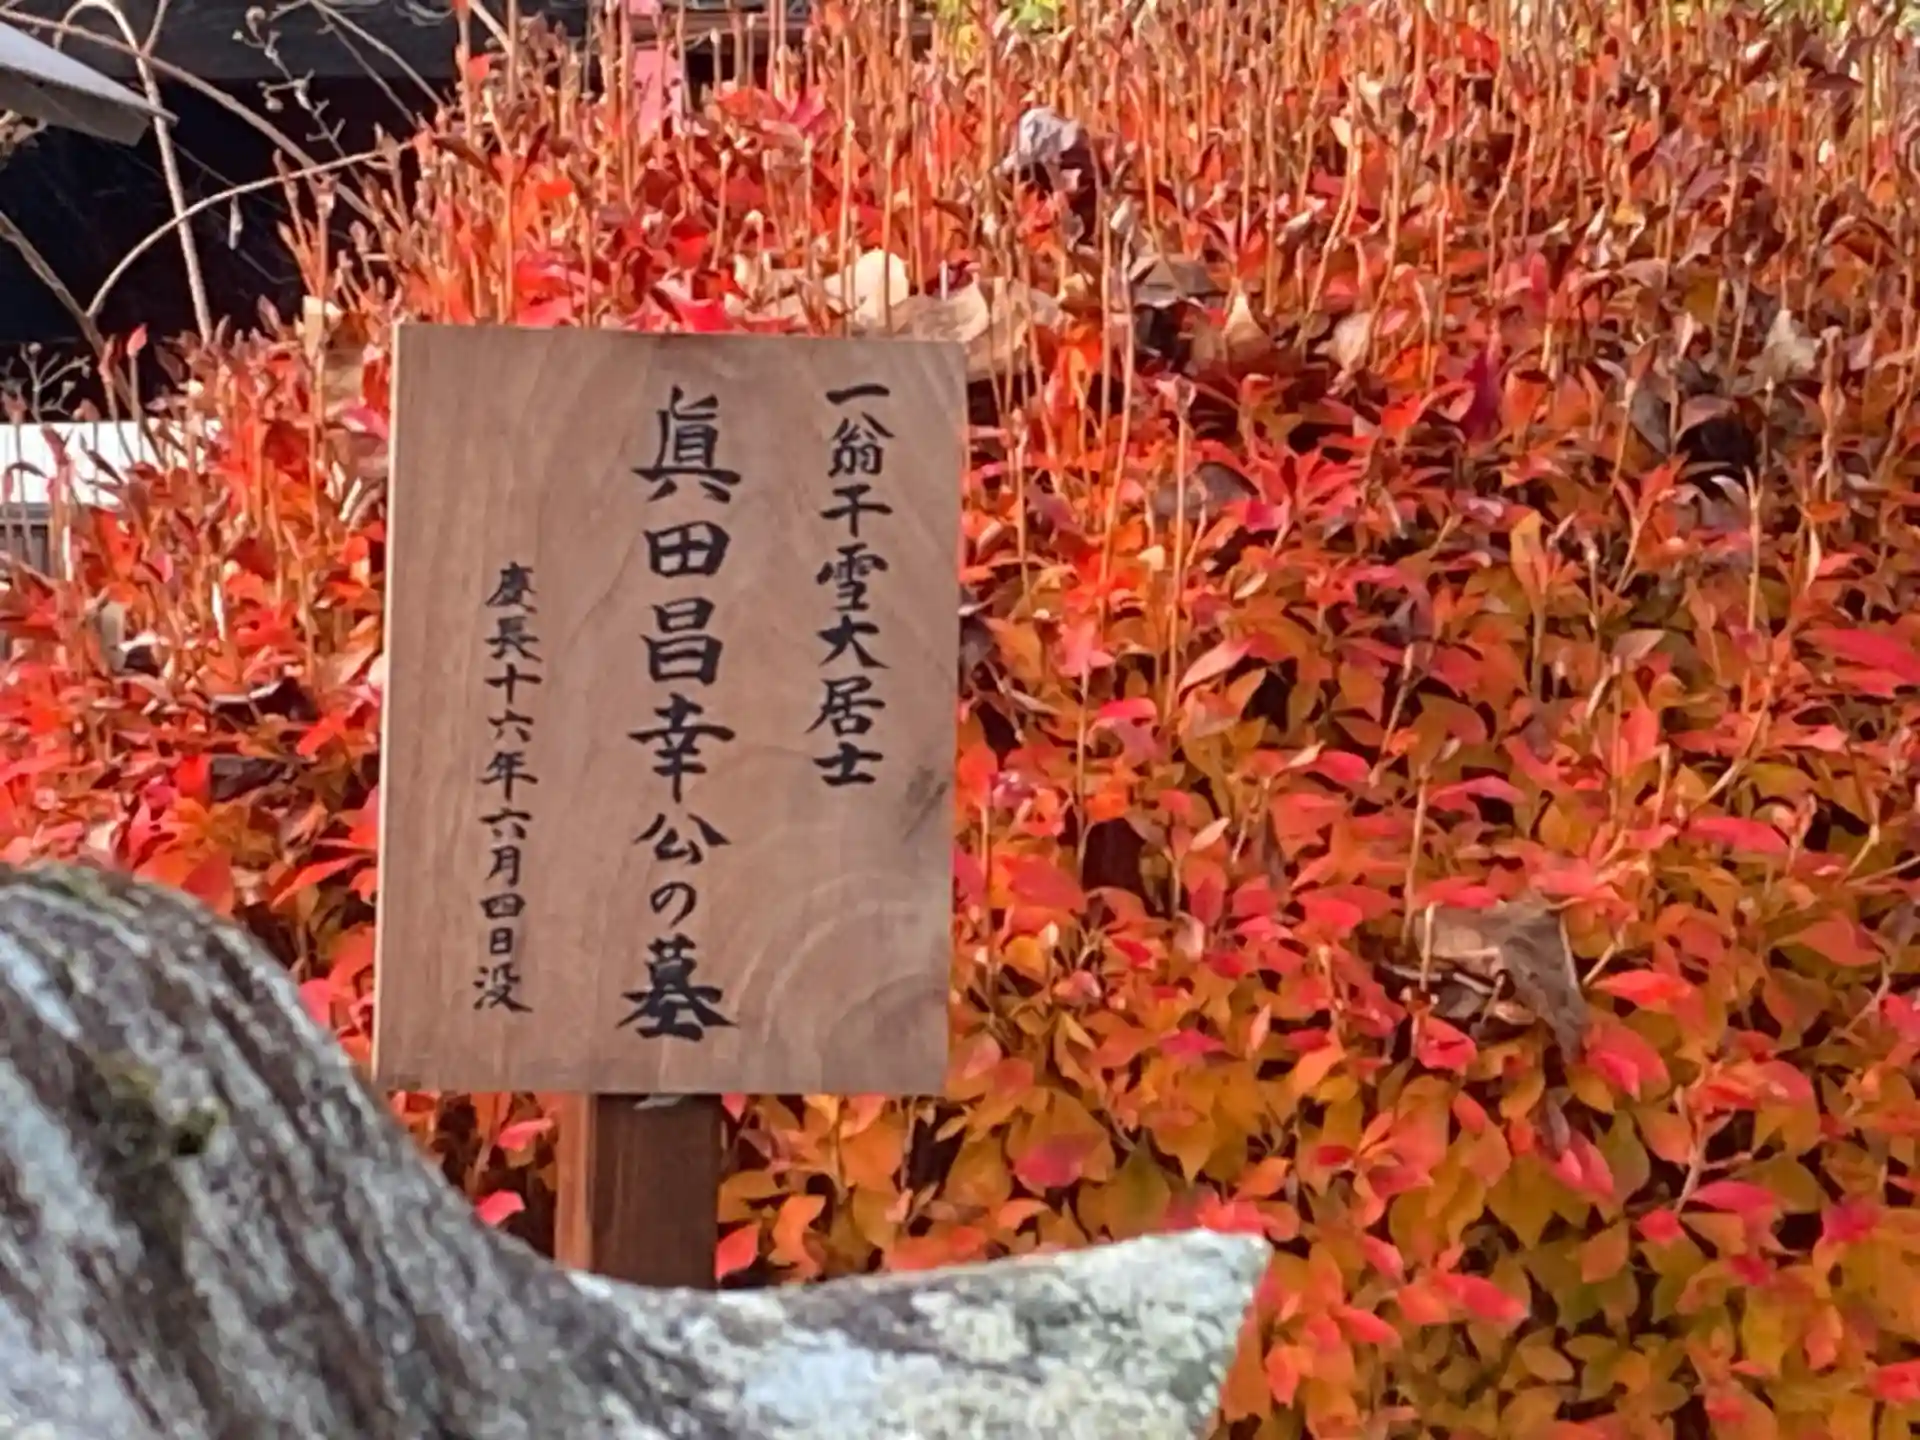 一翁干雪大居士
眞田昌幸公の墓
慶長十六年六月四日没